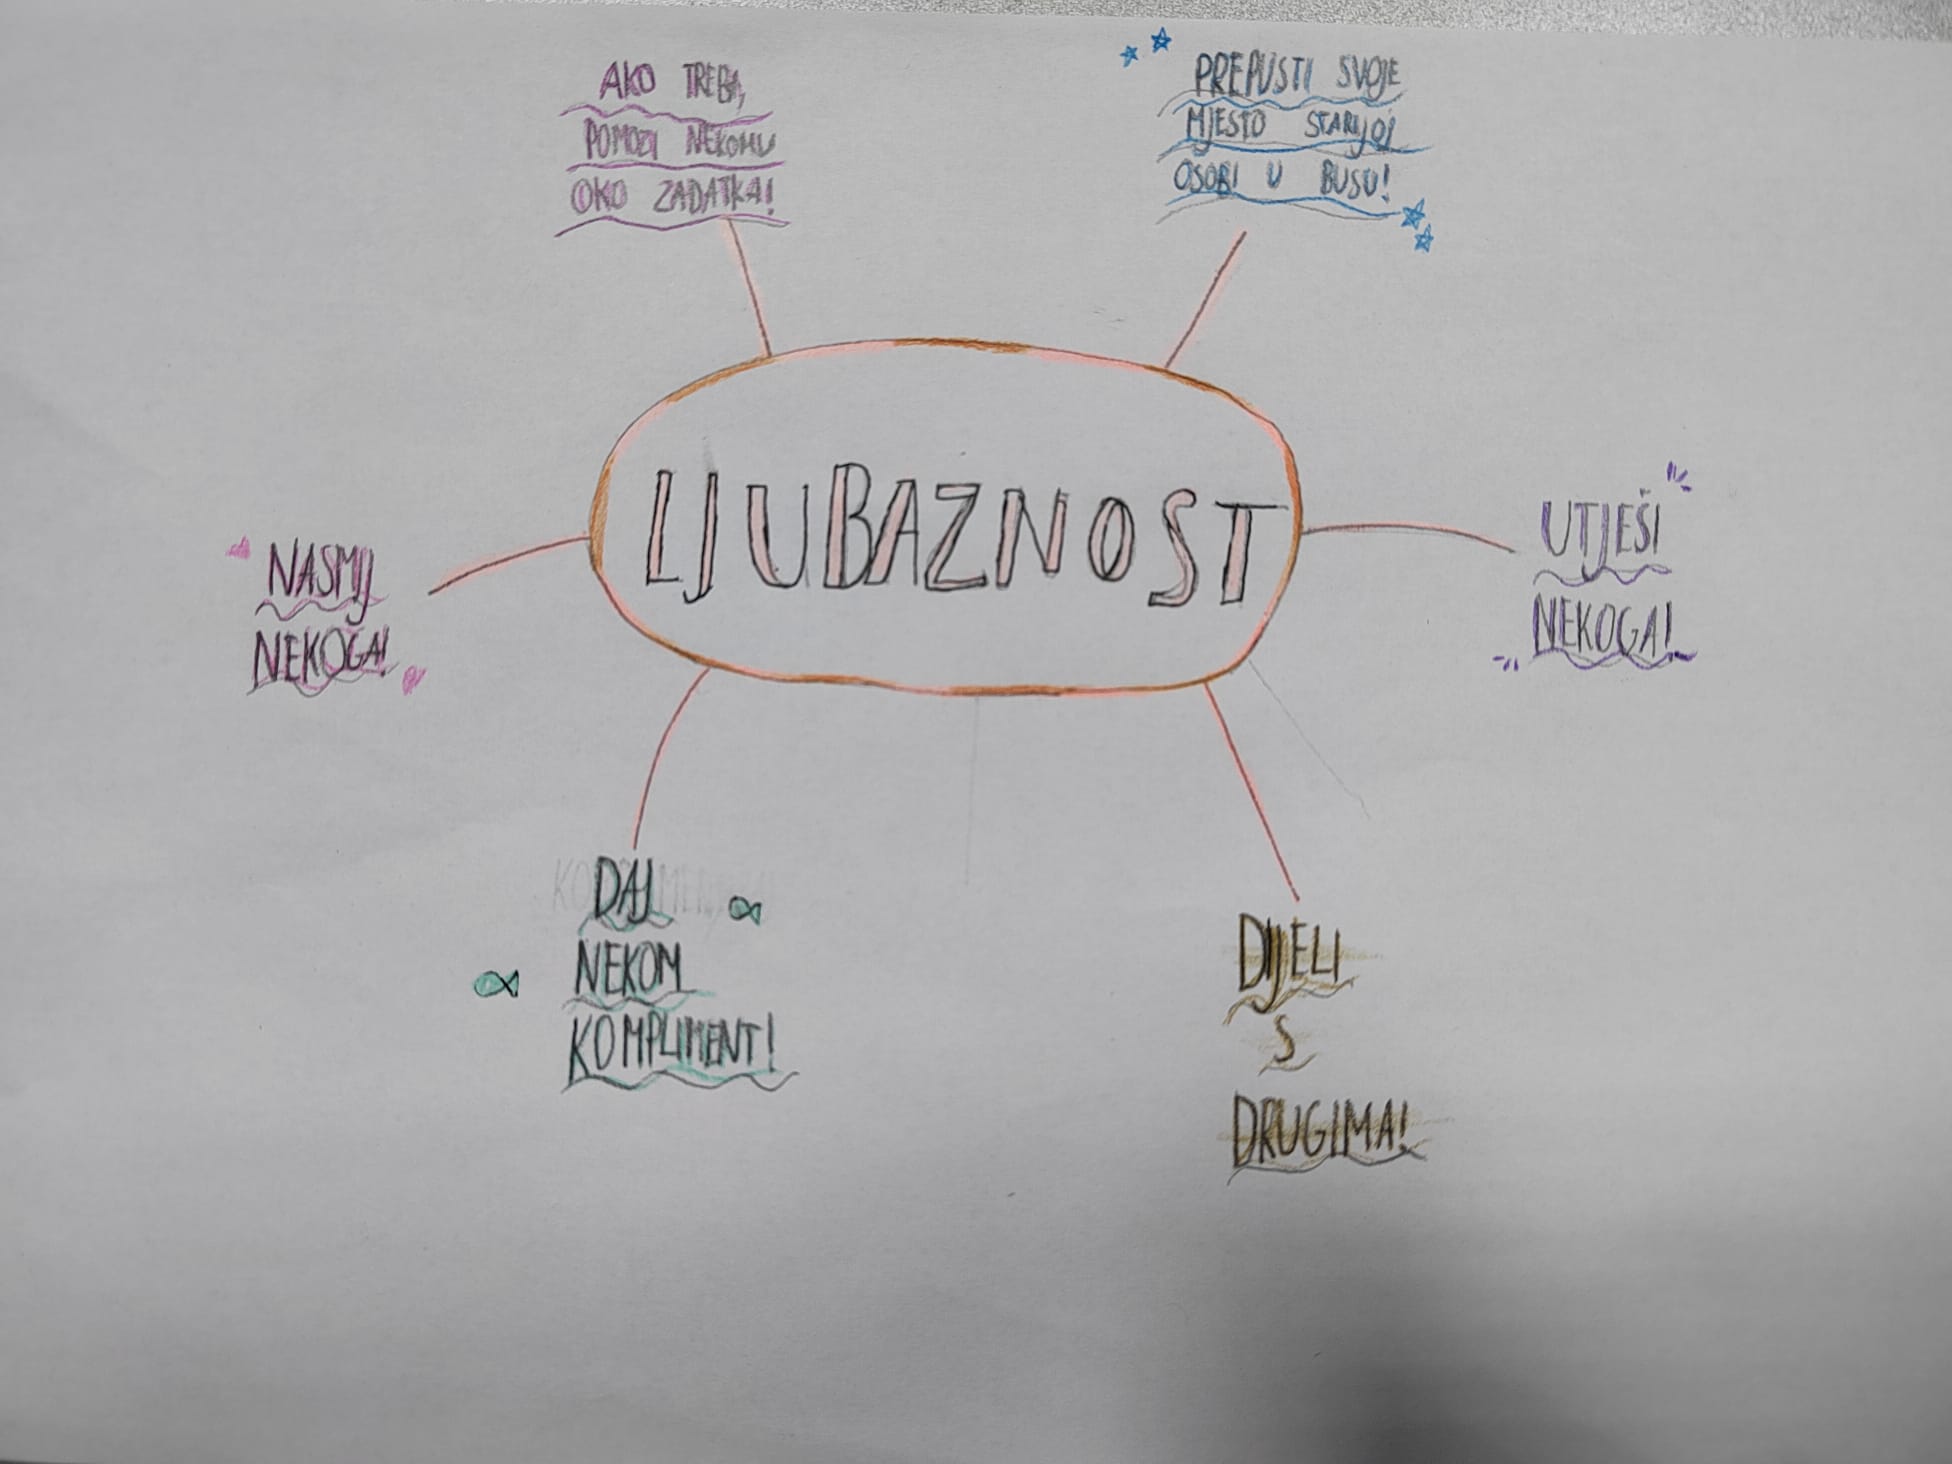 AKO TREBA,
POMOZI NEKOMU
OKO ZADATKA!
PREPUSTI SVOJE
MJESTO STARIJOJ
OSOBI U BUSU!
LJUBAZNOST
NASMIJ
NEKOGA!
UTJEŠI
NEKOGA!
DAJ
NEKOM
KOMPLIMENT!
DIJELI
S
DRUGIMA!